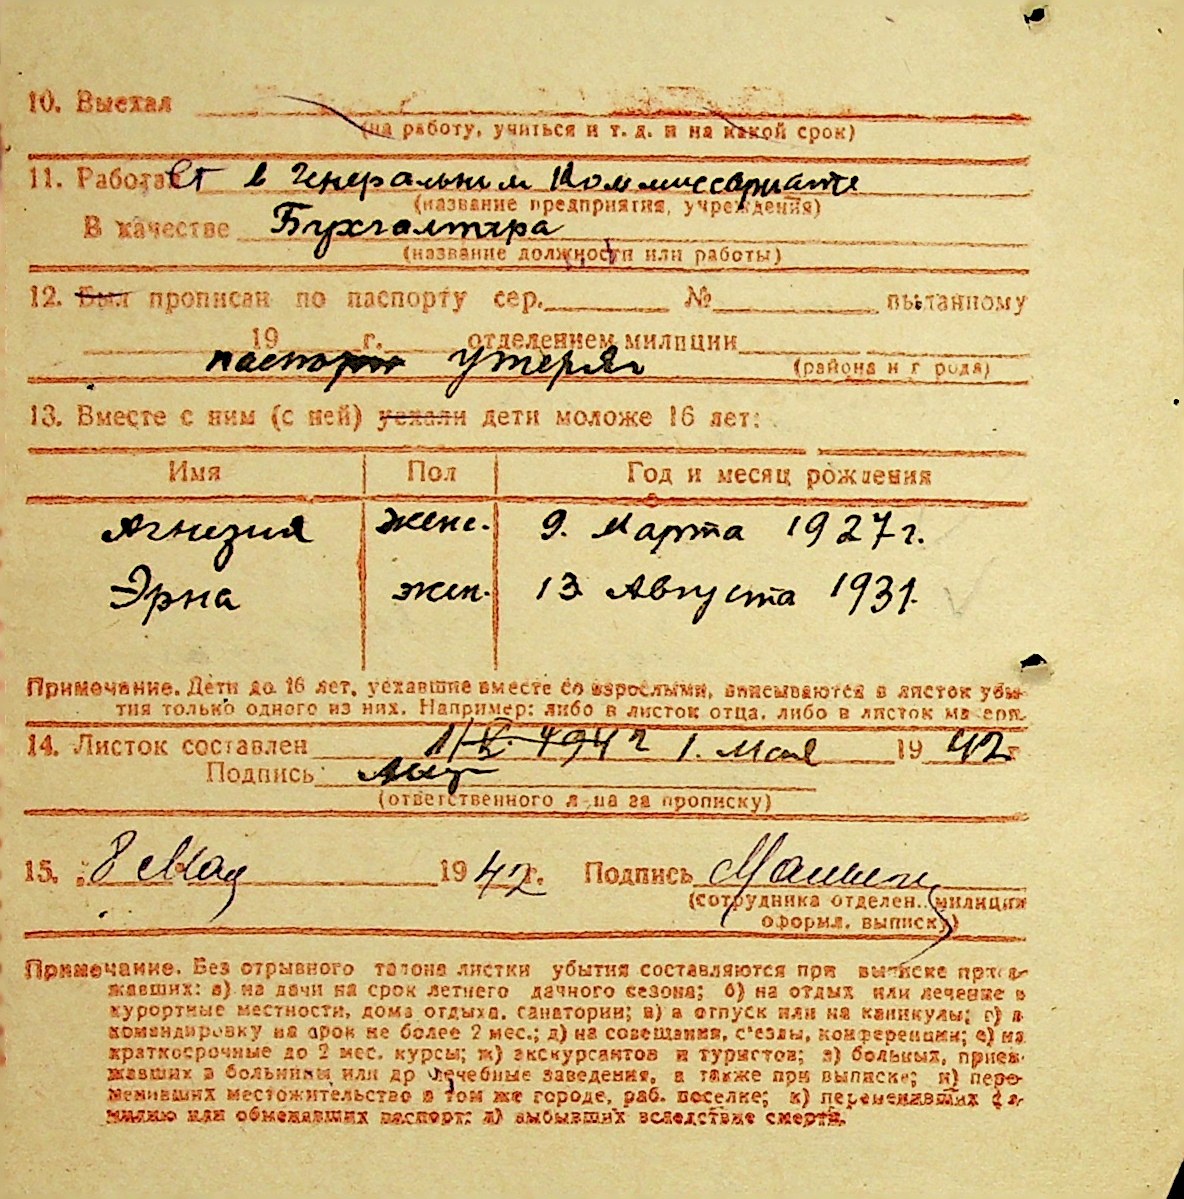 10. Выехал
(на работу, учиться и т. д. и на какой срок)
11. Работает в Генеральним Коммиссариате
(название предприятия, учреждения)
В качестве Бухгалтера
(название должности или работы)
12. Был прописан по паспорту сер. № выданному
19 г. отделением милиции
паспорт утерян
(района и города)
13. Вместе с ним (с ней) уехали дети моложе 16 лет:
Имя Пол Год и месяц рождения
Агнезия женс. 9. Марта 1927 г.
Эрна жен. 13 Августа 1931.
Примечание. Дети до 16 лет, уехавшие вместе со взрослыми, вписываются в листок убы-
тия только одного из них. Например: либо в листок отца, либо в листок матери.
14. Листок составлен 1/V. 1942 1. Мая 1942 г
Подпись
(ответственного лица за прописку)
15. 8 Мая 1942 г. Подпись
(сотрудника отделен. милиции
оформл. выписку)
Примечание. Без отрывного талона листки убытия составляются при выписке приез-
жавших: а) на дачи на срок летнего дачного сезона; б) на отдых или лечение в
курортные местности, дома отдыха, санатории; в) в отпуск или на каникулы; г) в
командировку на срок не более 2 мес.; д) на совещания, с'езды, конференции; е) на
краткосрочные до 2 мес. курсы; ж) экскурсантов и туристов; з) больных, приез-
жавших в больницы или др лечебные заведения, а также при выписке; и) пере-
менивших местожительство в том же городе, раб. поселке; к) переменивших фа-
милию или обменявших паспорт; л) выбывших вследствие смерти.